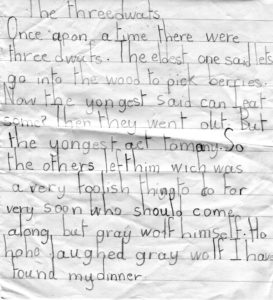 The threedwafs.
Once apon a time there were
three dwafs. The eldest one said lets
go into the wood to pick berries.
Now the yongest said can I eat
some? Then they went out. But
the yongest act tomany. So
the others left him wich was
a very foolish thing to do for
very soon who should come
along, but gray wolf himself. Ho
hoho laughed gray wolf I have
found my dinner.